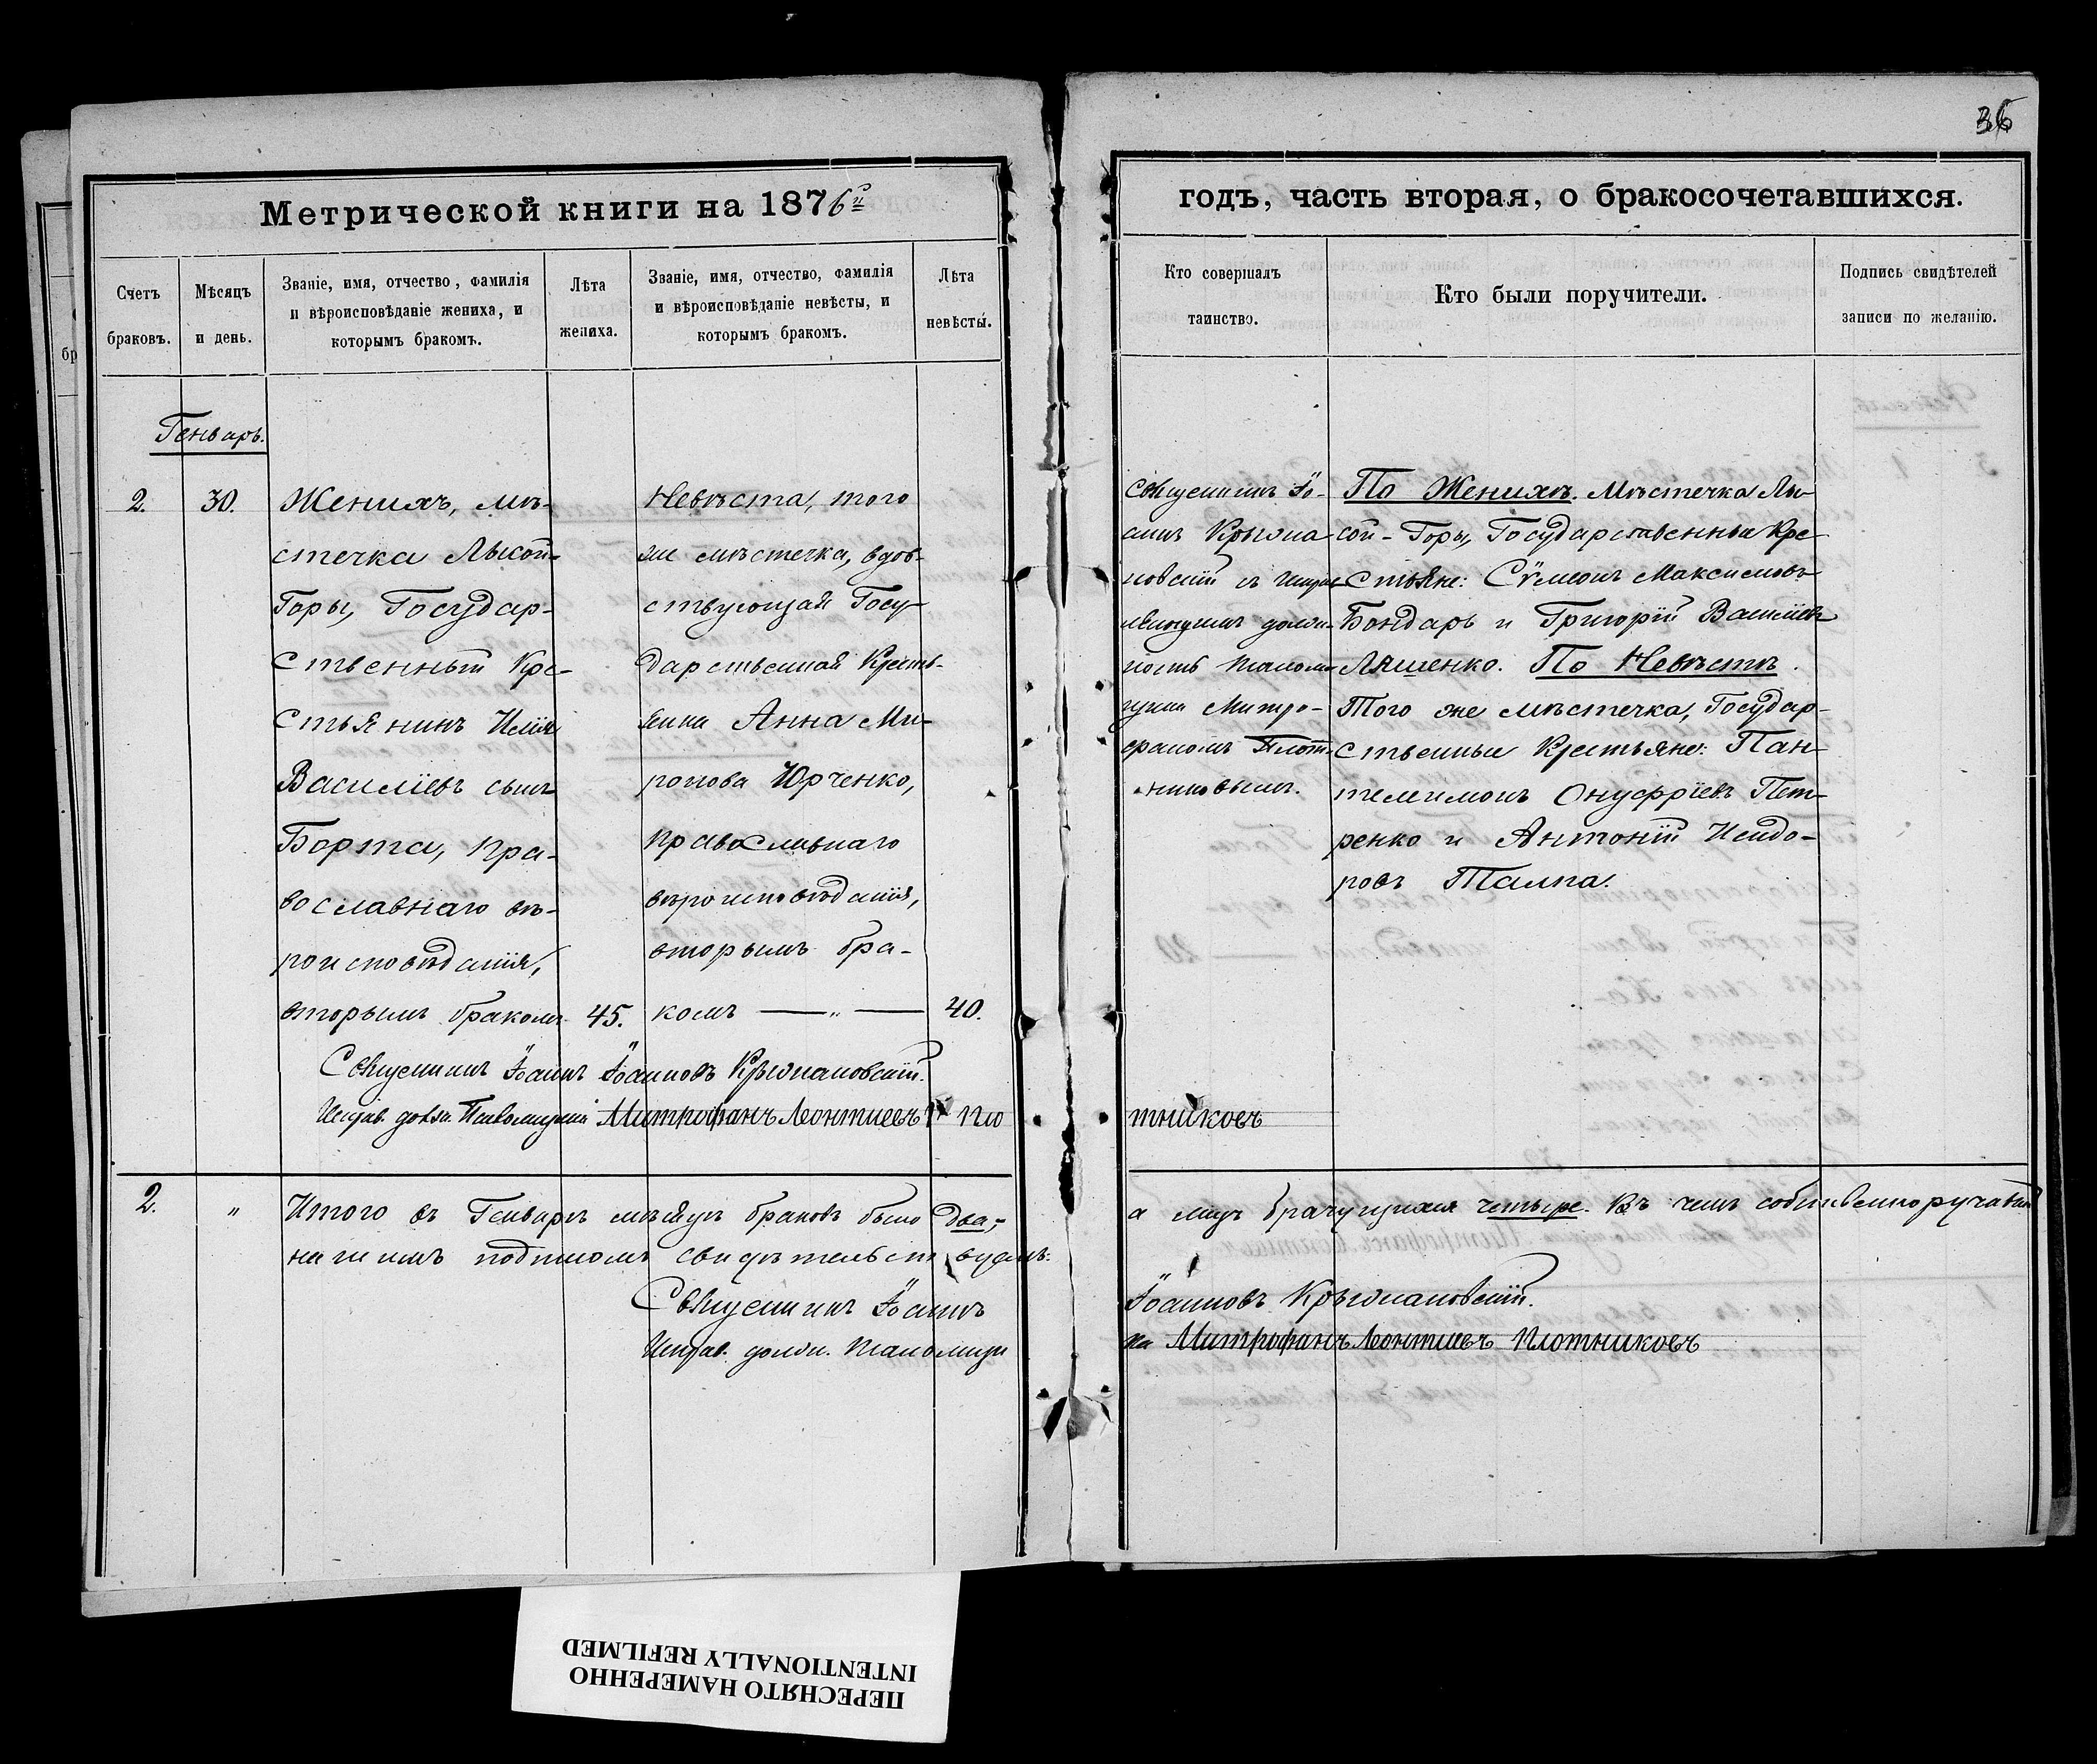 36
Метрической книги на 1876й
годъ, часть вторая, о бракосочетавшихся.
Счетъ
браковъ.
Мѣсяцъ
и день.
Званіе, имя, отчество, фамилія
и вѣроисповѣданіе жениха, и
которымъ бракомъ.
Лѣта
жениха.
Званіе, имя, отчество, фамилія
и вѣроисповѣданіе невѣсты, и
которымъ бракомъ.
Лѣта
невѣсты.
Кто совершалъ
таинство.
Кто были поручители.
Подпись свидѣтелей
записи по желанію.
Генварь.
2.
30.
Женихъ, мѣ-
стечка Лысой-
Горы, Государ-
ственный Кре-
стьянинъ Илія
Василіевъ сынъ
Борта, пра-
вославнаго вѣ-
роисповѣданія,
вторымъ бракомъ
45.
Невѣста, того
же мѣстечка, вдов-
ствующая Госу-
дарственная Кресть-
янка Анна Ми-
ронова Юрченко,
православнаго
вѣроисповѣданія,
вторымъ бра-
комъ — „ —
40.
Священникъ Іо-
аннъ Крыжа-
новскій съ исправ-
ляющимъ долж-
ность псалом-
щика Митро-
фаномъ Плот-
никовымъ.
По Женихѣ. Мѣстечка Лы-
сой-Горы, Государственные Кре-
стьяне: Сѵмеонъ Максимовъ
Бондарь и Григорій Василіевъ
Ляшенко. По Невѣстѣ.
Того же мѣстечка, Государ-
ственные Крестьяне: Пан-
телеимонъ Онуфріевъ Пет-
ренко и Антоній Исидо-
ровъ Талпа.
Священникъ Іоаннъ Іоанновъ Крыжановскій.
Исправ. долж. Псаломщика Митрофанъ Леонтиевъ Пло
тниковъ
2.
„
Итого въ Генварѣ мѣсяцѣ браковъ было два,
а лицъ брачущихся четыре. Въ чемъ собственноручнымъ
нашимъ подписомъ свидѣтельствуемъ:
Священникъ Іоаннъ
Іоанновъ Крыжановскій.
Исправ. долж. Псаломщи
ка Митрофанъ Леонтиевъ Плотниковъ
ПЕРЕСНЯТО НАМЕРЕННО
INTENTIONALLY REFILMED